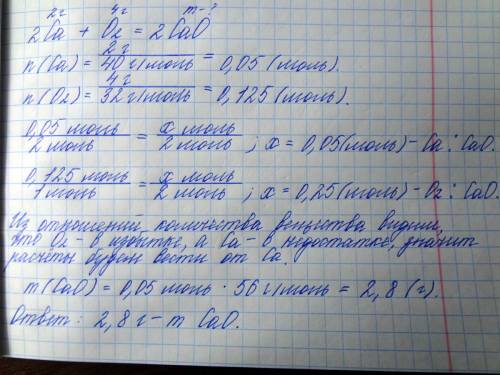 2г 4г m-?
2Ca + O₂ = 2CaO
n(Ca) = 2г / 40 г/моль = 0,05 (моль).
n(O₂) = 4г / 32 г/моль = 0,125 (моль).
0,05 моль / 2 моль = x моль / 2 моль ; x = 0,05 (моль) - Ca : CaO.
0,125 моль / 1 моль = x моль / 2 моль ; x = 0,25 (моль) - O₂ : CaO.
Из отношений количества вещества видим,
что O₂ - в избытке, а Ca - в недостатке, значит
расчеты будем вести от Ca.
m(CaO) = 0,05 моль · 56 г/моль = 2,8 (г).
Ответ: 2,8 г - m CaO.